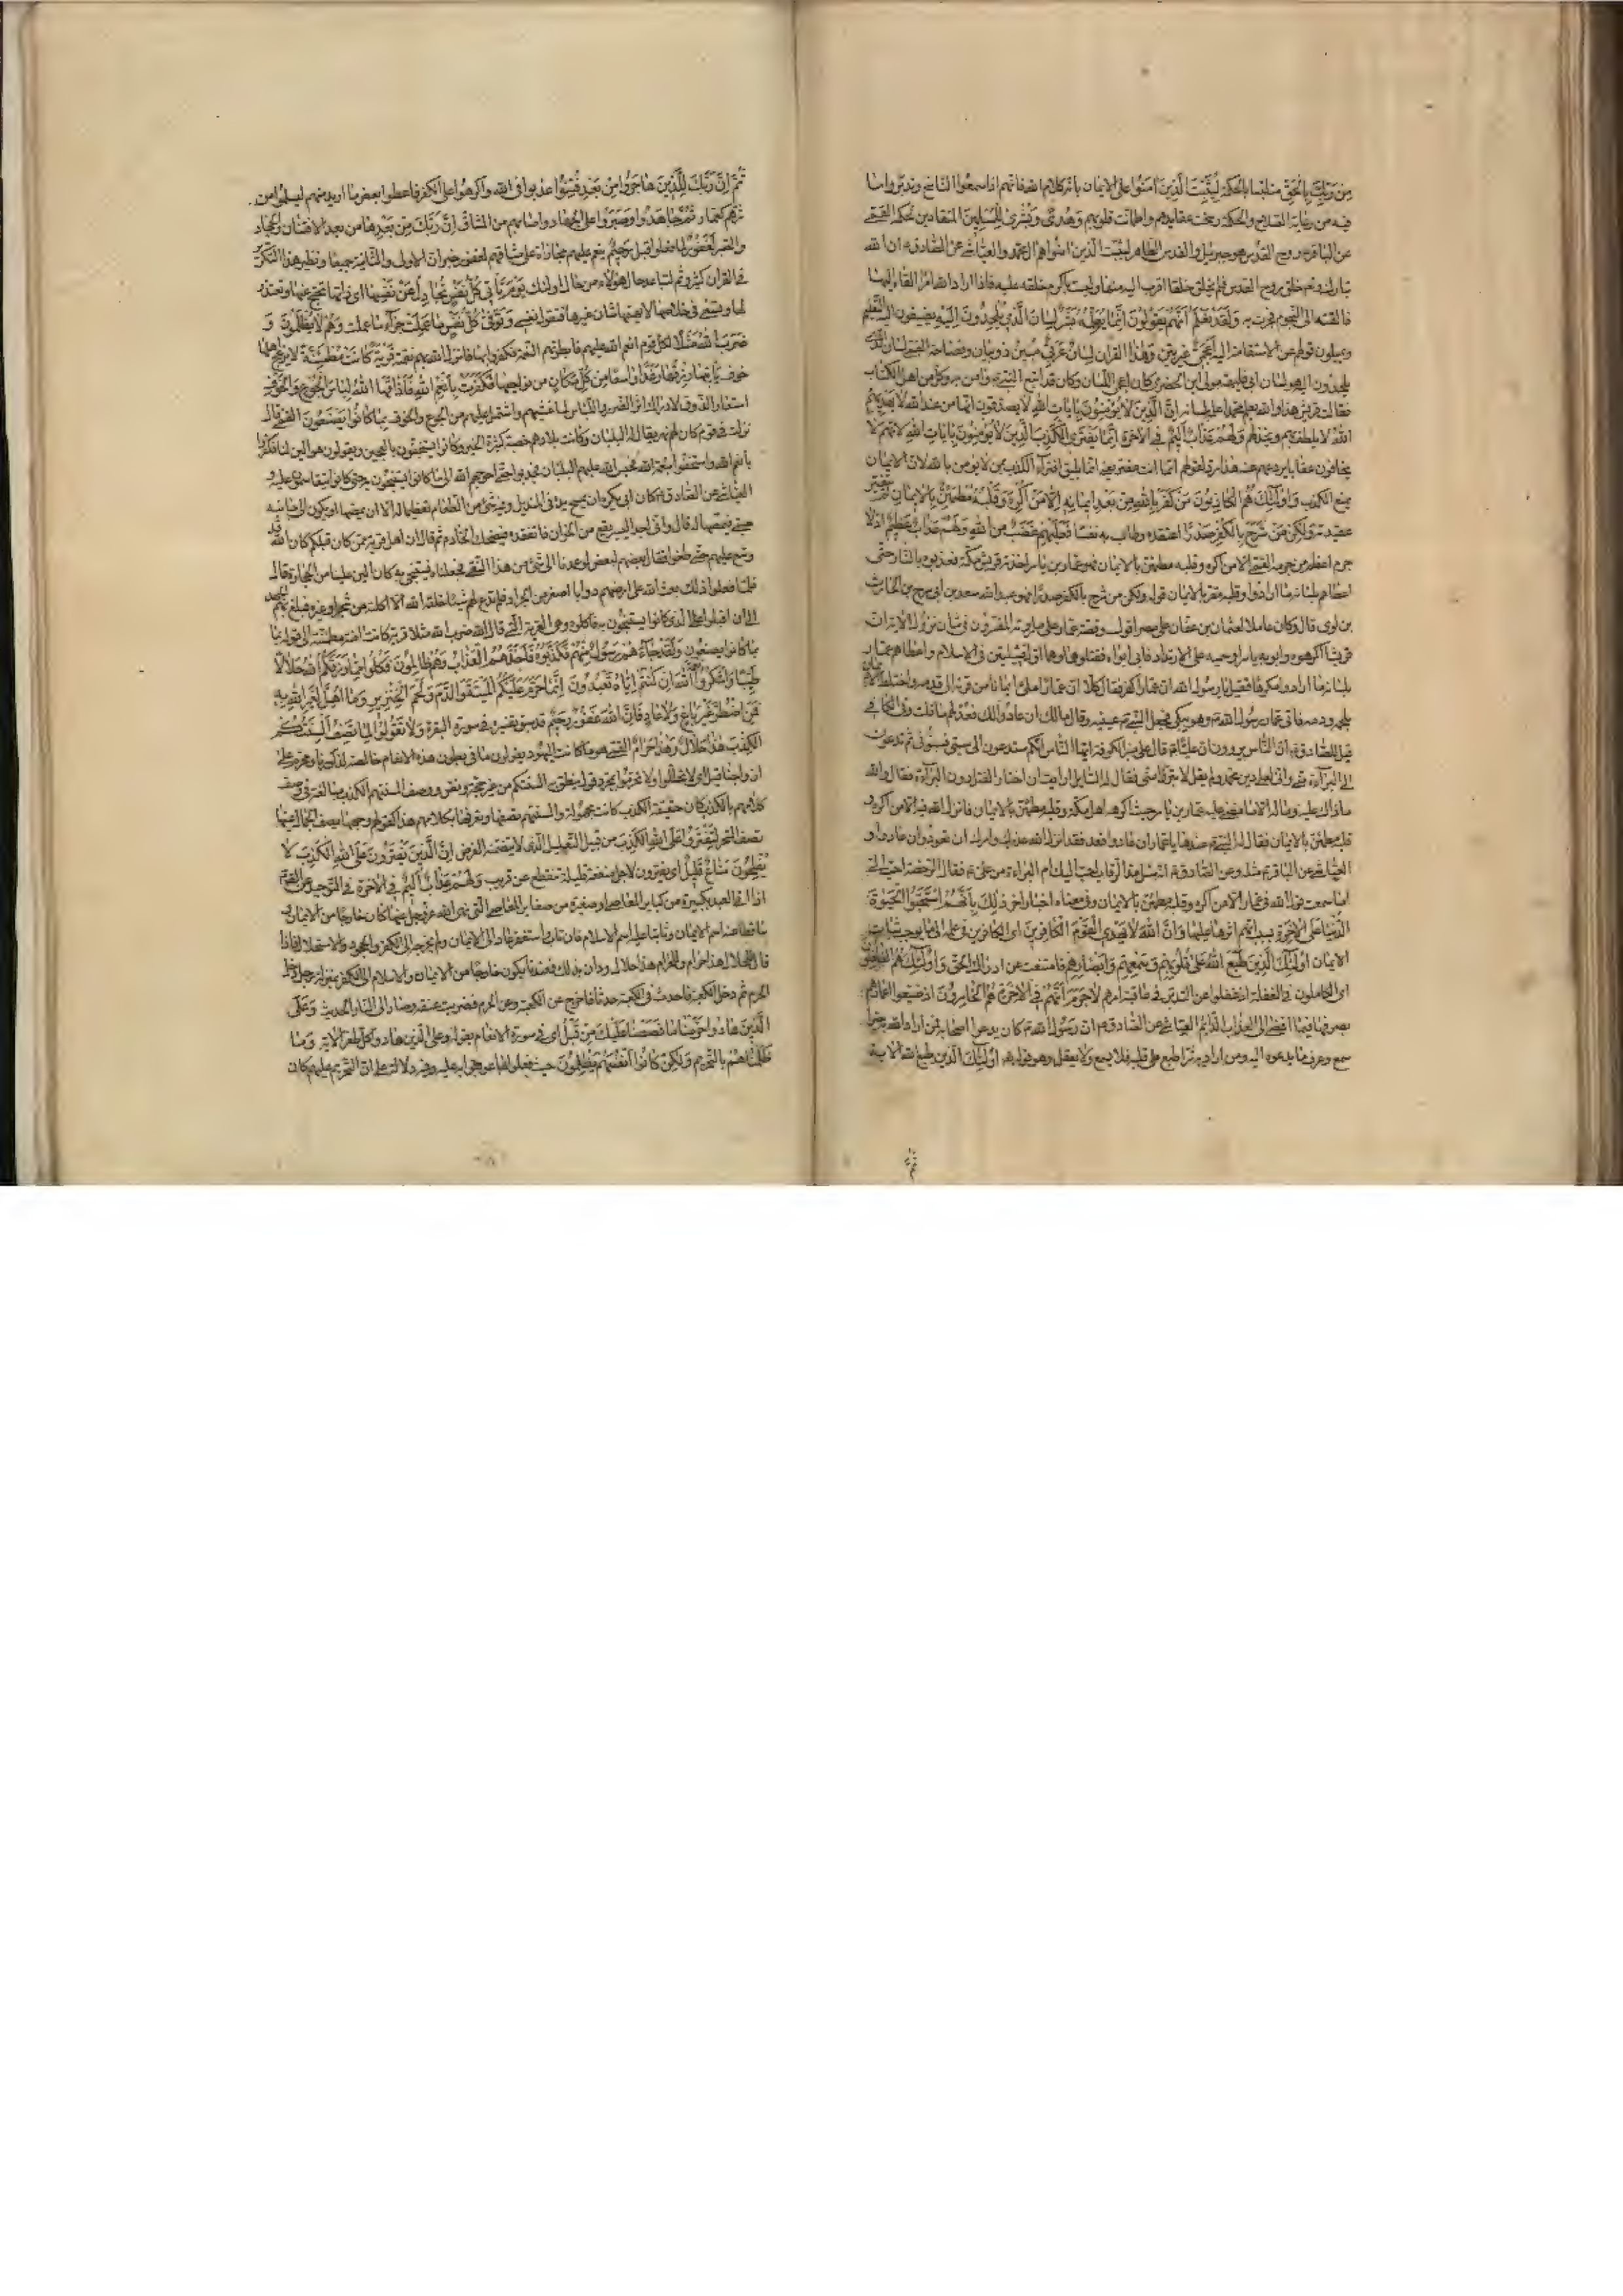 مِنْ رَبِّكَ بِالْحَقِّ متلبّسا بالحكمة لِيُثَبِّتَ الَّذينَ آمَنُوا على الايمان بانّه كلام الله فانّهم اذا سمعوا النّاسخ وتدبّروا ما
فيه من رعاية الصّلاح والحكمة رسخت عقايدهم واطمأنت قلوبهم وَهُدًى وَبُشْرى لِلْمُسْلِمينَ المنقادين لحكمه القمّى
عن الباقر روح القدس هو جبرئيل والقدس الطّاهر ليثبّت الّذين آمنوا هم آل محمّد والعيّاشى عن الصّادق ان الله
تبارك وتعالى خلق روح القدس فلم يخلق خلقا اقرب اليه منها وليست باكرم خلقه عليه فاذا اراد الله امرا القاه اليها
فالقته الى النّجوم فجرت به وَلَقَدْ نَعْلَمُ أَنَّهُمْ يَقُولُونَ إِنَّما يُعَلِّمُهُ بَشَرٌ لِسانُ الَّذي يُلْحِدُونَ إِلَيْهِ يضيفون اليه التّعليم
ويميلون قولهم عن الاستقامة اليه أَعْجَمِيٌّ غير بيّن وَهذا القرآن لِسانٌ عَرَبِيٌّ مُبينٌ ذو بيان وفصاحة القمى لسان الّذى
يلحدون اليه هو لسان ابى فكيهة مولى ابن الحضرمى كان اعجمى اللّسان وكان قد اتبع النّبى وآمن به وكان من اهل الكتاب
فقالت قريش هذا والله يعلم محمّدا علمه بلسانه إِنَّ الَّذينَ لا يُؤْمِنُونَ بِآياتِ اللهِ لا يصدّقون انّها من عند الله لا يَهْديهِمُ
اللهُ لا يلطف بهم ويخذلهم وَلَهُمْ عَذابٌ أَليمٌ فى الآخرة إِنَّما يَفْتَرِي الْكَذِبَ الَّذينَ لا يُؤْمِنُونَ بِآياتِ اللهِ لانّهم لا
يخافون عقابا يردعهم عنه هذا ردّ لقولهم انّما انت مفتر يعنى انّما يليق افتراء الكذب بمن لا يؤمن بالله لان الايمان
يمنع الكذب وَأُولئِكَ هُمُ الْكاذِبُونَ مَنْ كَفَرَ بِاللهِ مِنْ بَعْدِ إيمانِهِ إِلاّ مَنْ أُكْرِهَ وَقَلْبُهُ مُطْمَئِنٌّ بِالْإيمانِ لم تتغيّر
عقيدته وَلكِنْ مَنْ شَرَحَ بِالْكُفْرِ صَدْرًا اعتقده وطاب به نفسا فَعَلَيْهِمْ غَضَبٌ مِنَ اللهِ وَلَهُمْ عَذابٌ عَظيمٌ اذ لا
جرم اعظم من جرمه القمى الّا من اكره وقلبه مطمئن بالايمان فهو عمّار بن ياسر اخذته قريش مكّة فعذبوه بالنّار حتى
اعطاهم بلسانه ما ارادوا وقلبه مقرّ بالايمان قوله ولكن من شرح بالكفر صدرا فهو عبد الله بن سعد بن ابى سرح بن الحارث
بن لوى قال وكان عاملا لعثمان بن عفّان على مصر اقول وقصّة عمّار على ما رواه المفسّرون فى شان نزول الآية ان
قريشا اكرهوه وابويه ياسر وسميّه على الارتداد فابى ابواه فقتلوهما وهما اوّل قتيلين فى الاسلام واعطاهم عمّار
بلسانه ما ارادوا مكرها فقيل يا رسول الله ان عمّارا كفر فقال كلّا ان عمّارا ملئ ايمانا من قرنه الى قدمه واختلط الايمان
بلحمه ودمه فاتى عمّار رسول الله وهو يبكى فجعل النّبى يمسح عينيه وقال ما لك ان عادوا لك فعد لهم بما قلت وفى الكافى
قيل للصّادق ان النّاس يروون ان عليّا قال على منبر الكوفة ايّها النّاس انكم ستدعون الى سبّى فسبّونى ثم تدعون
الى البراءة منّى وانى لعلى دين محمّد ولم يقل لا تبرّؤا منّى فقال له السّايل ارايت ان اختار القتل دون البراءة فقال والله
ما ذاك عليه وما له الّا ما مضى عليه عمّار بن ياسر حيث اكرهه اهل مكّة وقلبه مطمئن بالايمان فانزل الله فيه الّا من اكره و
قلبه مطمئن بالايمان فقال له النّبى عندها يا عمّار ان عادوا فعد فقد انزل الله عذرك وامرك ان تعود ان عادوا و
العيّاشى عن الباقر مثله وعن الصّادق انه سئل مدّ الرّقاب احبّ اليك ام البراءة من على فقال الرّخصة احبّ الىّ
اما سمعت قول الله فى عمّار الّا من اكره وقلبه مطمئن بالايمان وفى معناه اخبار اخر ذلِكَ بِأَنَّهُمُ اسْتَحَبُّوا الْحَيوةَ
الدُّنْيا عَلَى الْآخِرَةِ بسبب انّهم آثروها عليها وَأَنَّ اللهَ لا يَهْدِي الْقَوْمَ الْكافِرينَ اى الكافرين فى علمه الى ما يوجب ثبات
الايمان أُولئِكَ الَّذينَ طَبَعَ اللهُ عَلى قُلُوبِهِمْ وَسَمْعِهِمْ وَأَبْصارِهِمْ فامتنعت عن ادراك الحقّ وَأُولئِكَ هُمُ الْغافِلُونَ
اى الكاملون فى الغفلة اذ غفلوا عن التدبّر فى عاقبة امرهم لا جَرَمَ أَنَّهُمْ فِي الْآخِرَةِ هُمُ الْخاسِرُونَ اذ ضيّعوا اعمارهم
بصرفها فيما افضى الى العذاب الدّايم العيّاشى عن الصّادق ان رسول الله كان يدعو اصحابه فمن اراد الله به خيرا
سمع وعرف ما يدعوه اليه ومن اراد به شرّا طبع على قلبه فلا يسمع ولا يعقل وهو قوله أُولئِكَ الَّذينَ طبع الله الآية
ثُمَّ إِنَّ رَبَّكَ لِلَّذينَ هاجَرُوا مِنْ بَعْدِ ما فُتِنُوا عذّبوا فى الله واكرهوا على الكفر فاعطوا بعض ما اريد منهم ليسلموا من
شرّهم كعمّار ثُمَّ جاهَدُوا وَصَبَرُوا على الجهاد وما اصابهم من المشاق إِنَّ رَبَّكَ مِنْ بَعْدِها من بعد الافتنان والجهاد
والصّبر لَغَفُورٌ لما فعلوا قبل رَحيمٌ ينعم عليهم مجازاة على مشاقهم
فى القرآن كثير يَوْمَ تَأْتي كُلُّ نَفْسٍ تُجادِلُ عَنْ نَفْسِها اى ذاتها تحتجّ عنها وتعتذر
لها وتسعى فى خلاصها لا يهمّها شان غيرها فتقول نفسى نفسى وَتُوَفّى كُلُّ نَفْسٍ ما عَمِلَتْ جزاء ما عملت وَهُمْ لا يُظْلَمُونَ وَ
ضَرَبَ اللهُ مَثَلًا لكل قوم انعم الله عليهم فابطرتهم النّعمة فكفروا بها فانزل الله بهم نقمته قَرْيَةً كانَتْ آمِنَةً مُطْمَئِنَّةً لا يزعج اهلها
خوف يَأْتيها رِزْقُها رَغَدًا واسعا مِنْ كُلِّ مَكانٍ من نواحيها فَكَفَرَتْ بِأَنْعُمِ اللهِ فَأَذاقَهَا اللهُ لِباسَ الْجُوعِ وَالْخَوْفِ
استعار الذّوق لادراك اثر الضّرر واللّباس لما غشيهم واشتمل عليهم من الجوع والخوف بِما كانُوا يَصْنَعُونَ القمى قال
نزلت فى قوم كان لهم نهر يقال له البلبان وكانت بلادهم خصبة كثيرة الخير وكانوا يستنجون بالعجين ويقولون هو الين لنا فكفروا
بانعم الله واستخفّوا بنعمة الله فحبس الله عليهم البلبان فجدبوا حتّى احوجهم الله الى ما كانوا يستنجون به حتى كانوا يتقاسمون عليه و
العيّاشى عن الصّادق كان ابى يكره ان يمسح يده فى المنديل وفيه شئ من الطّعام تعظيما له الّا ان يمصّها او يكون الى جانبه
صبى فيمصّها له قال وانى اجد اليسير يقع من الخوان فاتفقده فيضحك الخادم ثم قال ان اهل قرية ممن كان قبلكم كان الله قد
وسّع عليهم حتى طغوا فقال بعضهم لبعض لو عمدنا الى شئ من هذا النّقى فجعلناه نستنجى به كان الين علينا من الحجارة قال
فلمّا فعلوا ذلك بعث الله على ارضهم دوابا اصغر من الجراد فلم تدع لهم شيئا خلقه الله الّا اكلته من شجر او غيره فبلغ بهم الجهد
الى ان اقبلوا على الّذى كانوا يستنجون به فاكلوه وهى القرية الّتى قال الله ضرب الله مثلا قرية كانت آمنة مطمئنة الى قوله بما
كانوا يصنعون وَلَقَدْ جاءَهُمْ رَسُولٌ مِنْهُمْ فَكَذَّبُوهُ فَأَخَذَهُمُ الْعَذابُ وَهُمْ ظالِمُونَ فَكُلُوا مِمّا رَزَقَكُمُ اللهُ حَلالًا
طَيِّبًا وَاشْكُرُوا نِعْمَتَ اللهِ إِنْ كُنْتُمْ إِيّاهُ تَعْبُدُونَ إِنَّما حَرَّمَ عَلَيْكُمُ الْمَيْتَةَ وَالدَّمَ وَلَحْمَ الْخِنْزيرِ وَما أُهِلَّ لِغَيْرِ اللهِ بِهِ
فَمَنِ اضْطُرَّ غَيْرَ باغٍ وَلا عادٍ فَإِنَّ اللهَ غَفُورٌ رَحيمٌ قد سبق تفسيره فى سورة البقرة وَلا تَقُولُوا لِما تَصِفُ أَلْسِنَتُكُمُ
الْكَذِبَ هذا حَلالٌ وَهذا حَرامٌ القمى هو ما كانت اليهود يقولون ما فى بطون هذه الانعام خالصة لذكورنا ومحرّم على
ازواجنا قيل اى لا تحلّلوا ولا تحرّموا بمجرّد قول ينطق به السنتكم من غير حجّة ونصّ ووصف السنتهم الكذب مبالغة فى وصف
كلامهم بالكذب كان حقيقة الكذب كانت مجهولة والسنتهم تصفها وتعرفها بكلامهم هذا كقولهم وجهها يصف الجمال وعينها
تصف السّحر لِتَفْتَرُوا عَلَى اللهِ الْكَذِبَ من قبيل التّعليل الّذى لا يتضمّن الغرض إِنَّ الَّذينَ يَفْتَرُونَ عَلَى اللهِ الْكَذِبَ لا
يُفْلِحُونَ مَتاعٌ قَليلٌ اى يفترون لاجل منفعة قليلة تنقطع عن قريب وَلَهُمْ عَذابٌ أَليمٌ فى الآخرة فى التّوحيد عن الصّادق
اذا اتى العبد بكبيرة من كباير المعاصى او صغيرة من صغاير المعاصى الّتى نهى الله عزّ وجلّ عنها كان خارجا من الايمان و
ساقطا عنه اسم الايمان وثابتا عليه اسم الاسلام فان تاب واستغفر عاد الى الايمان ولم يخرجه الى الكفر والجحود والاستحلال فاذا
قال للحلال هذا حرام وللحرام هذا حلال ودان بذلك فعندها يكون خارجا من الايمان والاسلام الى الكفر بمنزلة رجل دخل
الحرم ثم دخل الكعبة فاحدث فى الكعبة حدثا فاخرج عن الكعبة وعن الحرم فضربت عنقه وصار الى النّار الحديث وَعَلَى
الَّذينَ هادُوا حَرَّمْنا ما قَصَصْنا عَلَيْكَ مِنْ قَبْلُ اى فى سورة الانعام بقوله وعلى الّذين هادوا حرّمنا كلّ ذى ظفر الآية وَما
ظَلَمْناهُمْ بالتّحريم وَلكِنْ كانُوا أَنْفُسَهُمْ يَظْلِمُونَ حيث فعلوا ما عوقبوا به عليه وفيه دلالة على ان التّحريم عليهم كان